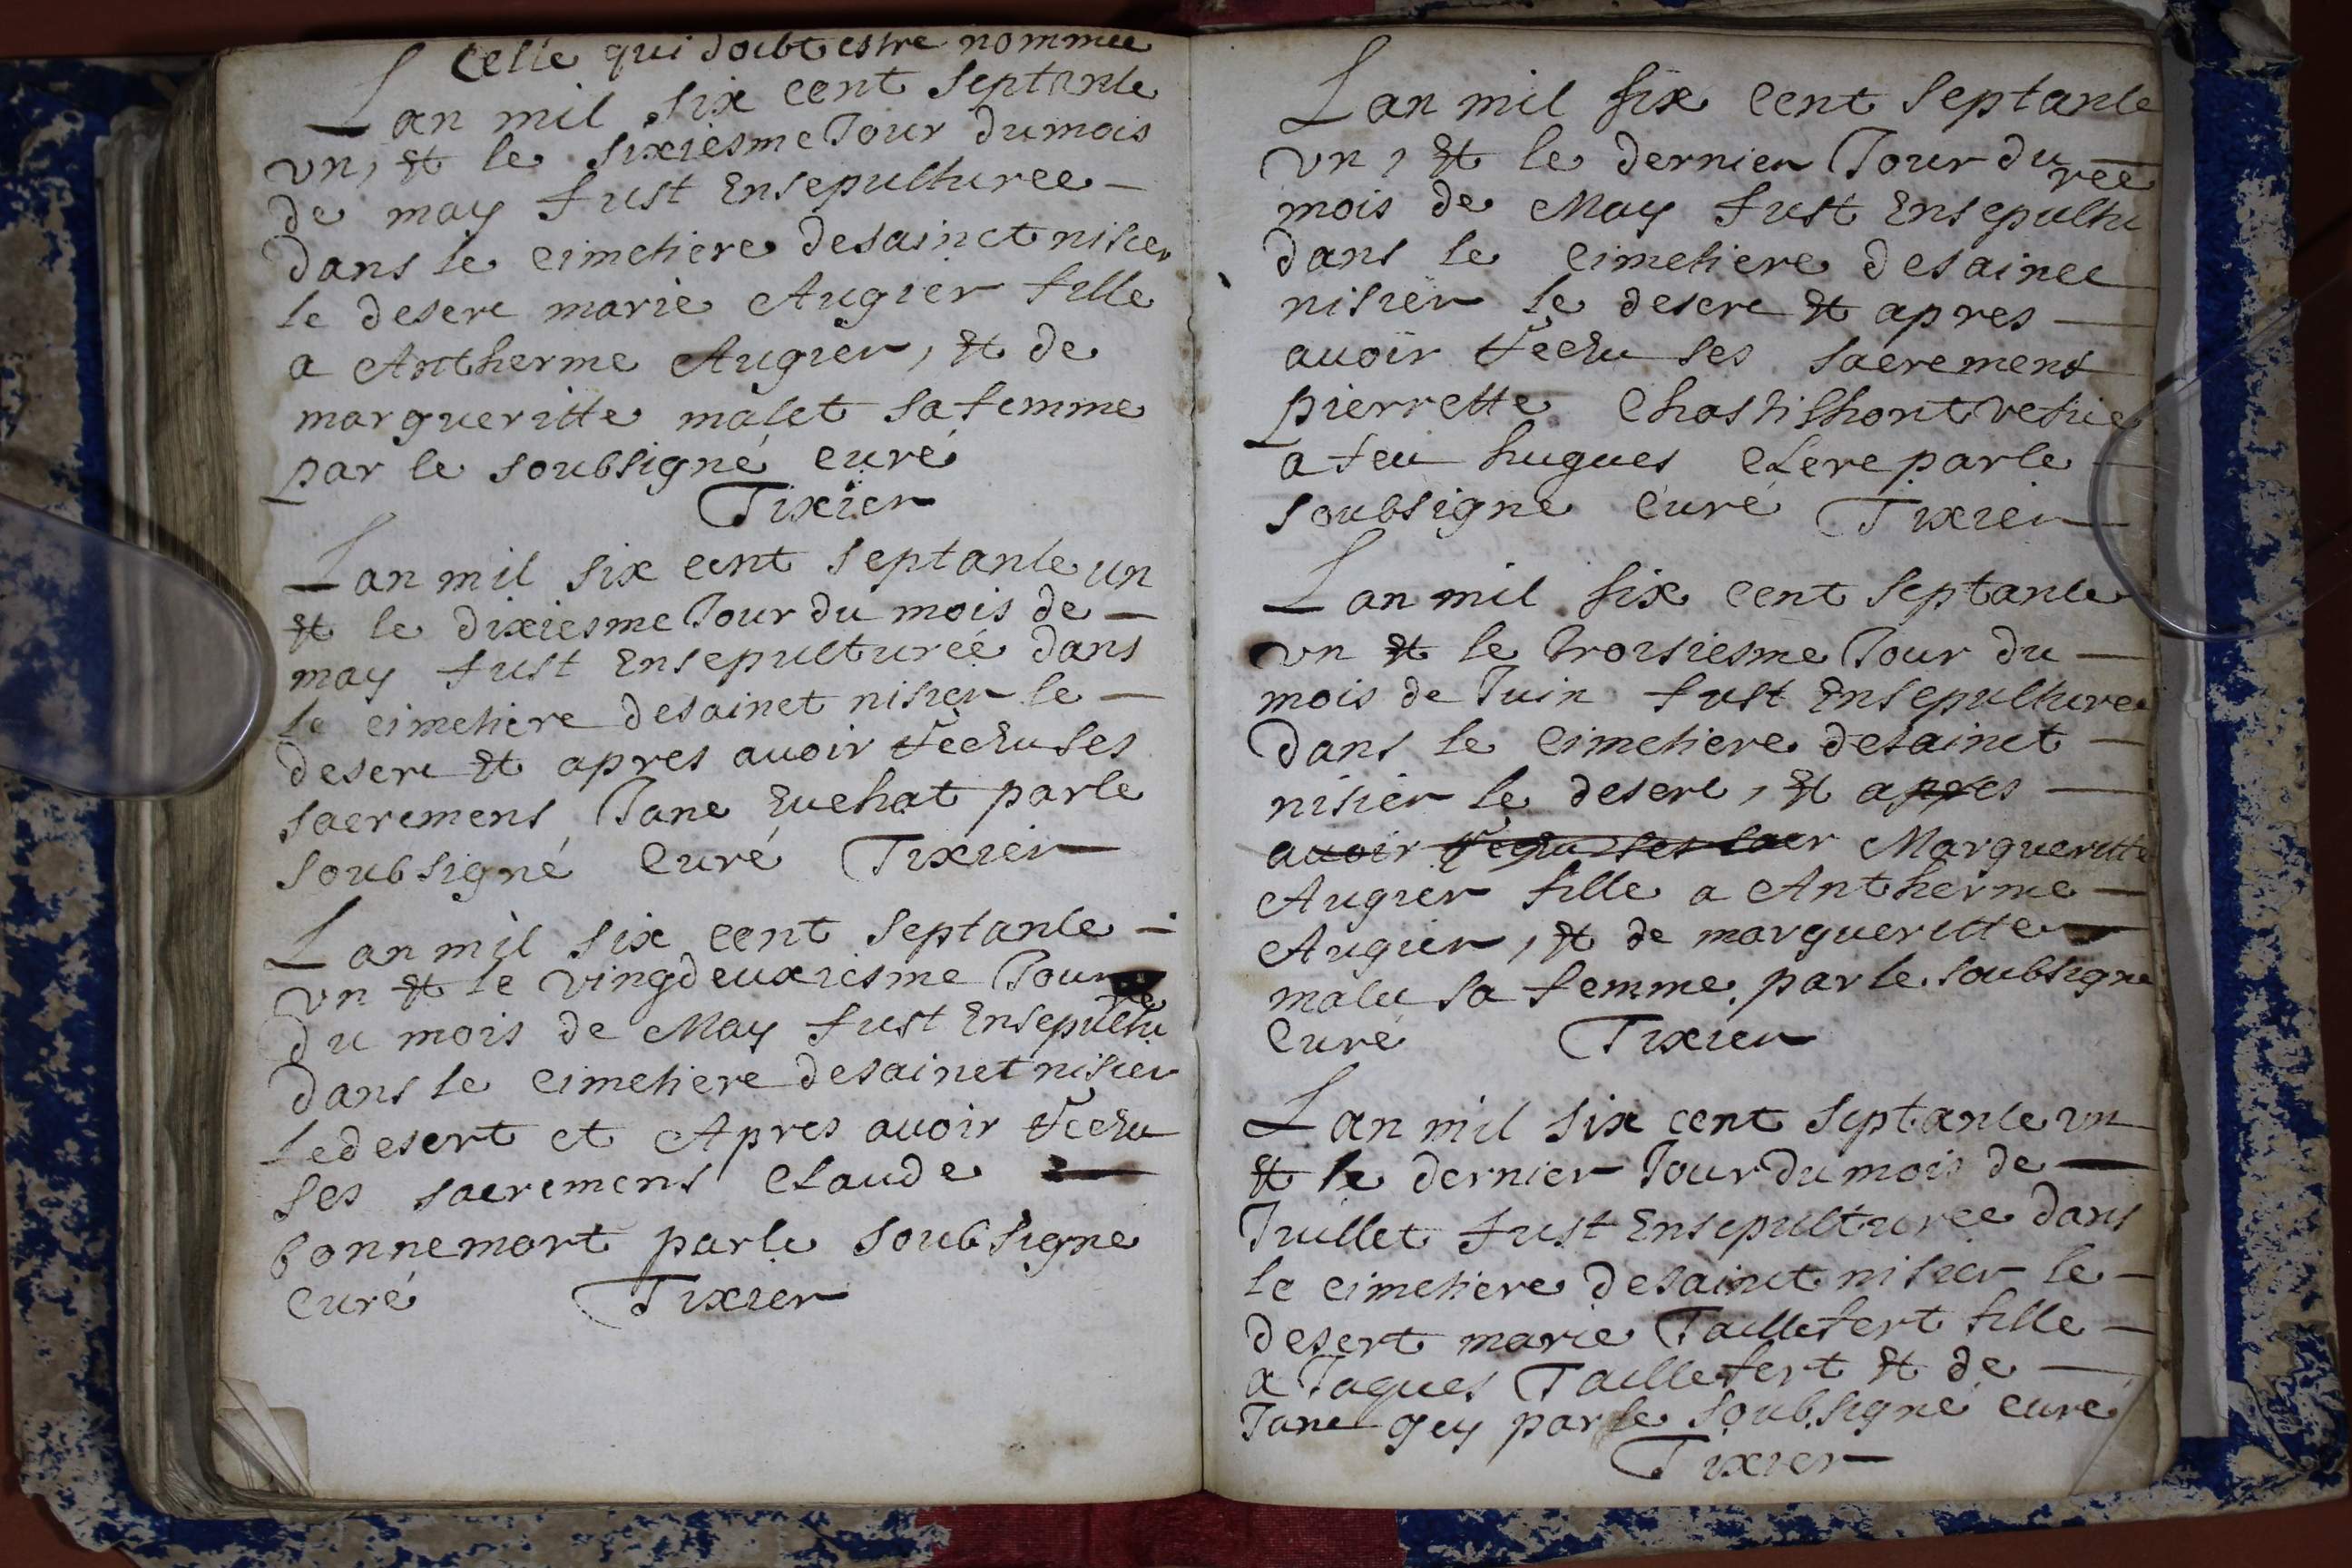 Celle qui doibt estre nommee
Lan mil six cent septante
vn, et le sixiesme Jour du mois
de may fust Ensepulturee
dans le cimetiere de sainct nisier
le desere marie Augier fille
a Antherme Augier, et de
margueritte malet sa femme
par le soubsigné curé
Tixier
Lan mil six cent septante un
et le dixiesme Jour du mois de
may fust Ensepulturéé dans
le cimetiere de sainct nisier le
desere et apres auoir recku ses
sacremens Jane Euchat par le
soubsigné Curé Tixier
Lan mil six cent septante
vn et le vingdeuxiesme Jour
du mois de May fust Ensepultu
re
dans le cimetiere de sainct nisier
le desert et Apres auoir recku
ses sacremens Claude
bonnemort par le soubsigne
Curé Tixier
Lan mil six cent septante
vn, et le dernier Jour du
mois de May fust Ensepultu
ree
dans le cimetiere de sainct
nisier le desere et apres
auoir recku ses sacremens
pierrette
a feu hugues Clere par le
soubsigne Curé Tixier
Lan mil six cent septante
vn et le troisiesme Jour du
mois de Juin fust Ensepulturee
dans le cimetiere de sainct
nisier le desere, et apres
auoir recku ses sacr Margueritte
Augier fille a Antherme
Augier, et de margueritte
malet sa femme par le soubsigne
Curé Tixier
Lan mil six cent septante vn
et le dernier Jour du mois de
Juillet fust Ensepulturee dans
le cimetiere de sainct nisier le
desert marie Taillefert fille
a Jaques Taillefert et de
Jane gey par le soubsigné curé
Tixier